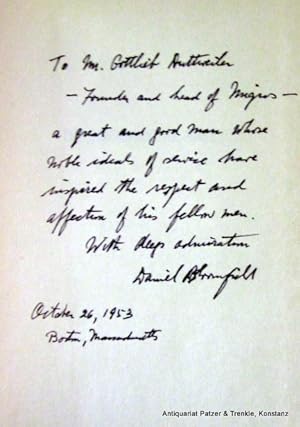 To Mr. Gottlieb Duttweiler
— Founder and head of Migros —
a great and good man whose
noble ideals of service have
inspired the respect and
affection of his fellow men.
With deep admiration
Daniel Bloomfield
October 26, 1953
Boston, Massachusetts
Antiquariat Patzer & Trenkle, Konstanz